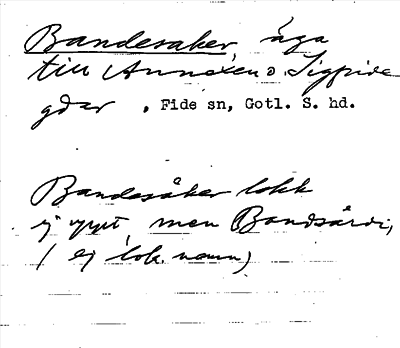 Bandesaker, äga
till Annexen o. Sigfride
gdar, Fide sn, Gotl. S. hd.
Bandesåker lokk
ej uppt, men Bandsärdi,
(ej lok. namn)